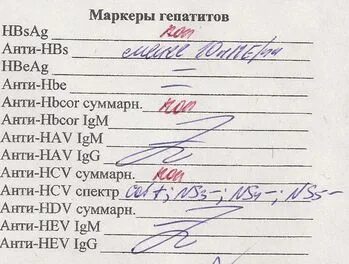 Маркеры гепатитов
HBsAg пол
Анти-HBs менее 10мМЕ/мл
HBeAg —
Анти-Hbe —
Анти-Hbcor суммарн. пол
Анти-Hbcor IgM
Анти-HAV IgM
Анти-HAV IgG
Анти-HCV суммарн. пол
Анти-HCV спектр cor+; NS3-; NS4-; NS5-
Анти-HDV суммарн.
Анти-HEV IgM
Анти-HEV IgG